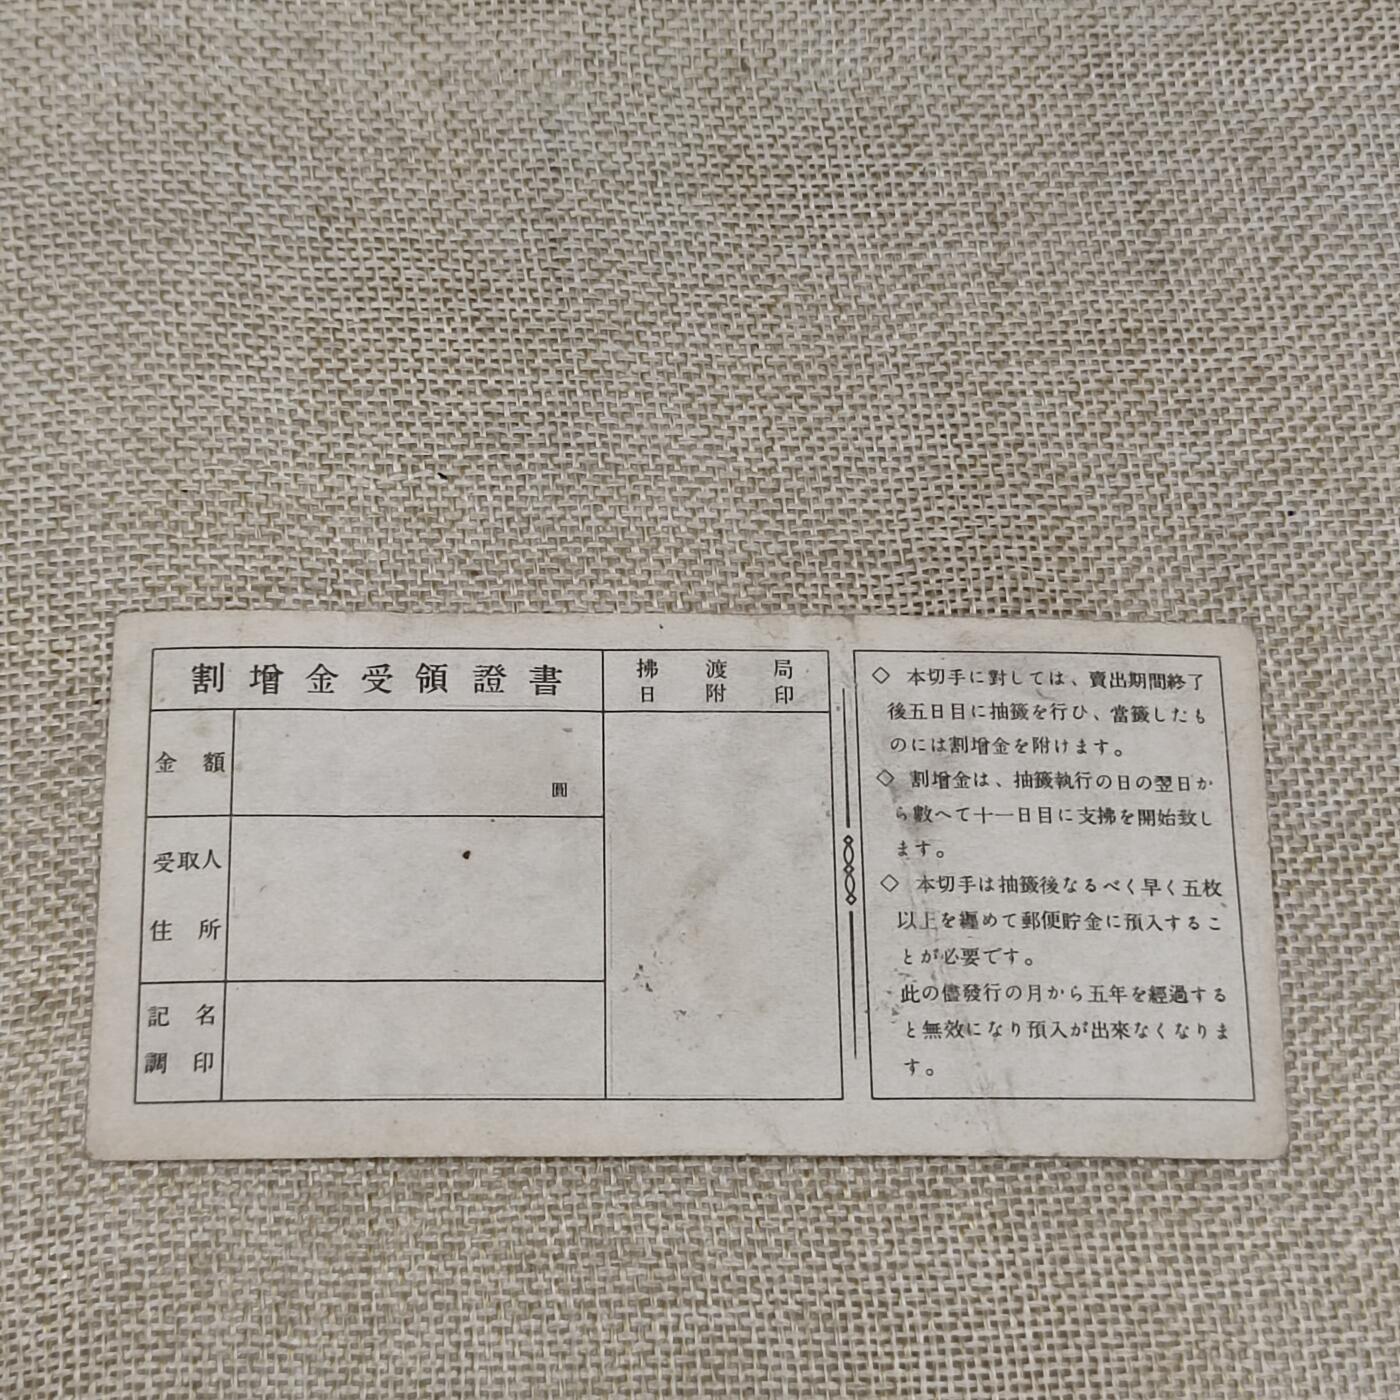 割增金受領證書
金額
圓
受取人
住所
記名
調印
拂渡局
日附印
◇ 本切手に對しては、賣出期間終了
後五日目に抽籤を行ひ、當籤したも
のには割增金を附けます。
◇ 割增金は、抽籤執行の日の翌日か
ら數へて十一日目に支拂を開始致し
ます。
◇ 本切手は抽籤後なるべく早く五枚
以上を纒めて郵便貯金に預入するこ
とが必要です。
此の儘發行の月から五年を經過する
と無效になり預入が出來なくなりま
す。